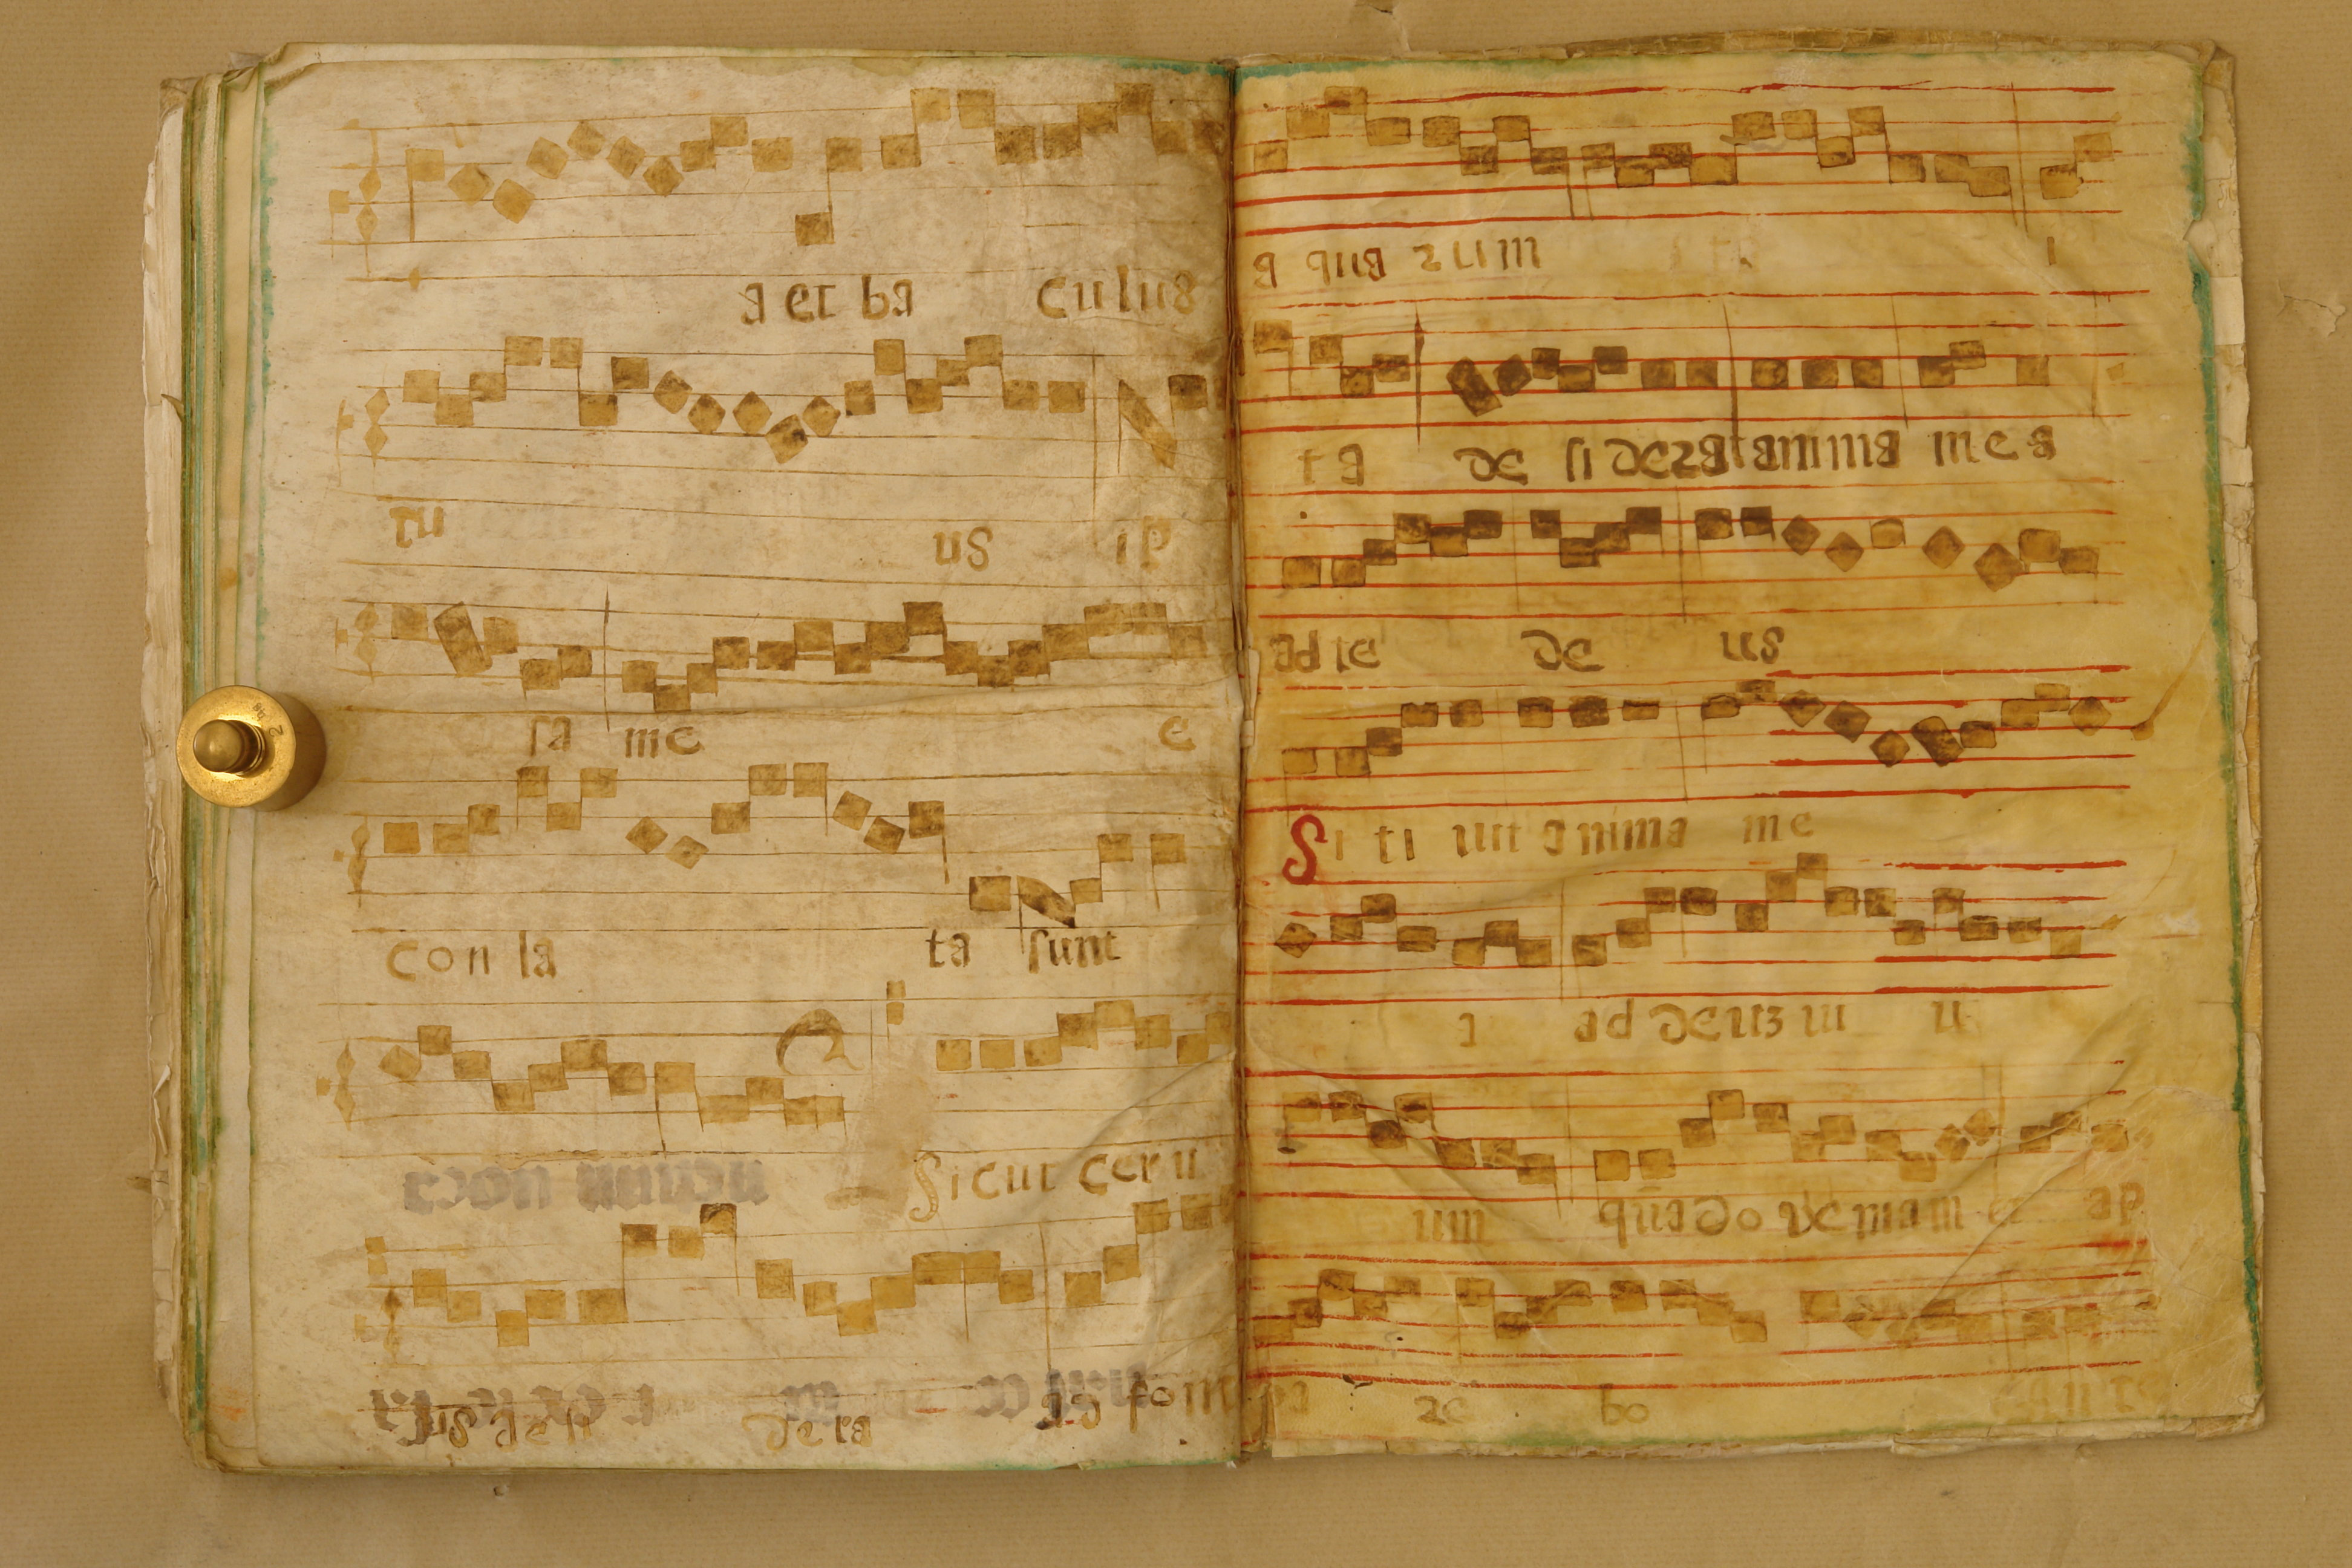 a et ba culus
tu us ip
sa me e
con la ta sunt
Sicut ceru
us desi dera ad fonte
a quazum i
ta desiderat anima mea
ad te de us
Sitiuit anima me
a ad deuz uiu
um quādo veniam et ap
pa re bo